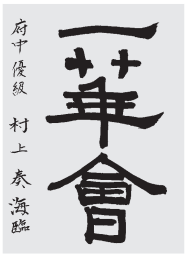 一華會
府中 優級 村上奏海臨